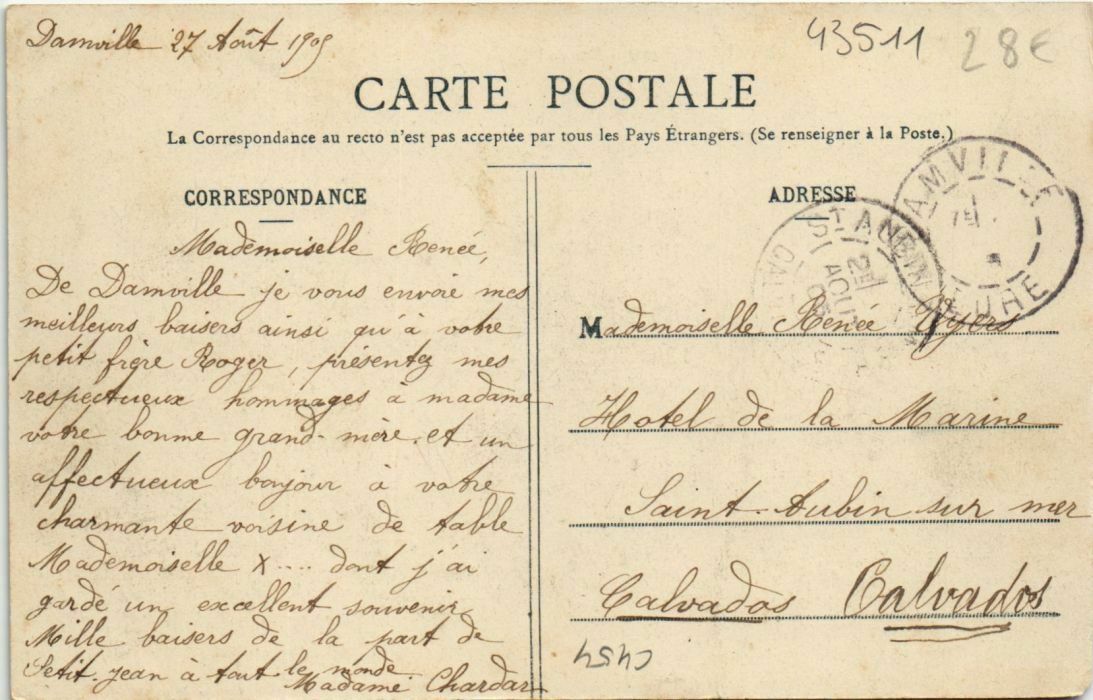 Damville 27 Août 1905
43511
28€
CARTE POSTALE
La Correspondance au recto n'est pas acceptée par tous les Pays Étrangers. (Se renseigner à la Poste.)
CORRESPONDANCE
Mademoiselle Renée,
De Damville je vous envoie mes
meilleurs baisers ainsi qu'à votre
petit frère Roger, présentez mes
respectueux hommages à madame
votre bonne grand-mère et un
affectueux bonjour à votre
charmante voisine de table
Mademoiselle X.... dont j'ai
gardé un excellent souvenir
Mille baisers de la part de
Petit-Jean à tout le monde.
Madame Chardar
ADRESSE
AMVILLE
EURE
ST AUBIN
Mademoiselle Renée
Hotel de la Marine
Saint-Aubin sur mer
Calvados Calvados
C454